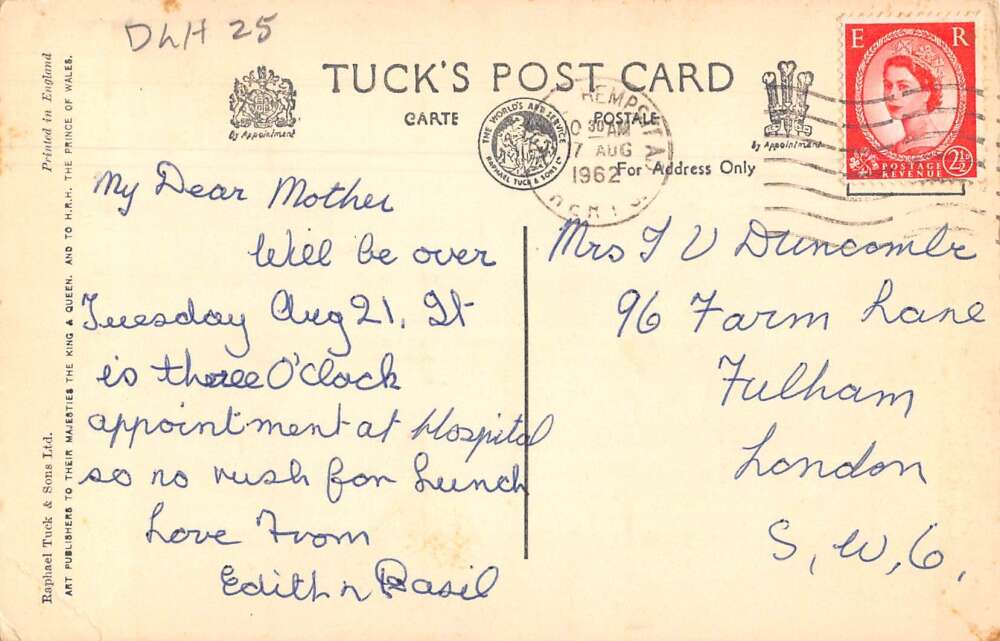 DLH 25
TUCK'S POST CARD
CARTE POSTALE
By Appointment
By Appointment
THE WORLD'S ART SERVICE
RAPHAEL TUCK & SONS LTD
For Address Only
HEMPSTEAD
30 AM
7 AUG
1962
HERTS
E R
POSTAGE
REVENUE
2½
Printed in England
Raphael Tuck & Sons Ltd.
ART PUBLISHERS TO THEIR MAJESTIES THE KING & QUEEN, AND TO H.R.H. THE PRINCE OF WALES.
My Dear Mother
Will be over
Tuesday Aug 21. It
is three O'Clock
appointment at Hospital
so no rush for Lunch
Love From
Edith n Basil
Mrs T V Duncombe
96 Farm Lane
Fulham
London
S, W, 6,